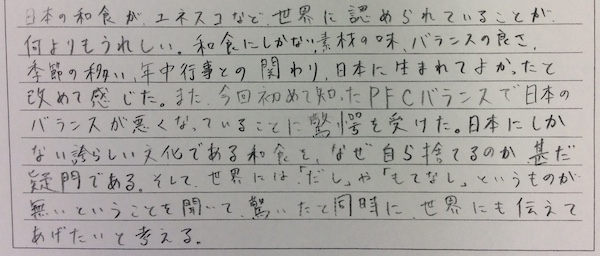 日本の和食が、エネスコなど、世界に認められていることが
何よりもうれしい。和食にしかない素材の味、バランスの良さ、
季節の移い、年中行事との関わり、日本に生まれてよかったと
改めて感じた。また、今回初めて知ったPFCバランスで日本の
バランスが悪くなっていることに驚愕を受けた。日本にしか
ない誇らしい文化である和食を、なぜ自ら捨てるのか甚だ
疑問である。そして、世界には「だし」や「もてなし」というものが
無いということを聞いて、驚いたと同時に、世界にも伝えて
あげたいと考える。